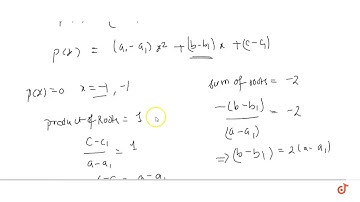 p(x) = (a₁-a₁) x² + (b-b₁) x + (c-c₁)
p(x)=0 x=-1, -1
product of roots = 1
c-c₁ / a-a₁ = 1
sum of roots = -2
-(b-b₁) / (a-a₁) = -2
⇒ (b-b₁) = 2(a-a₁)